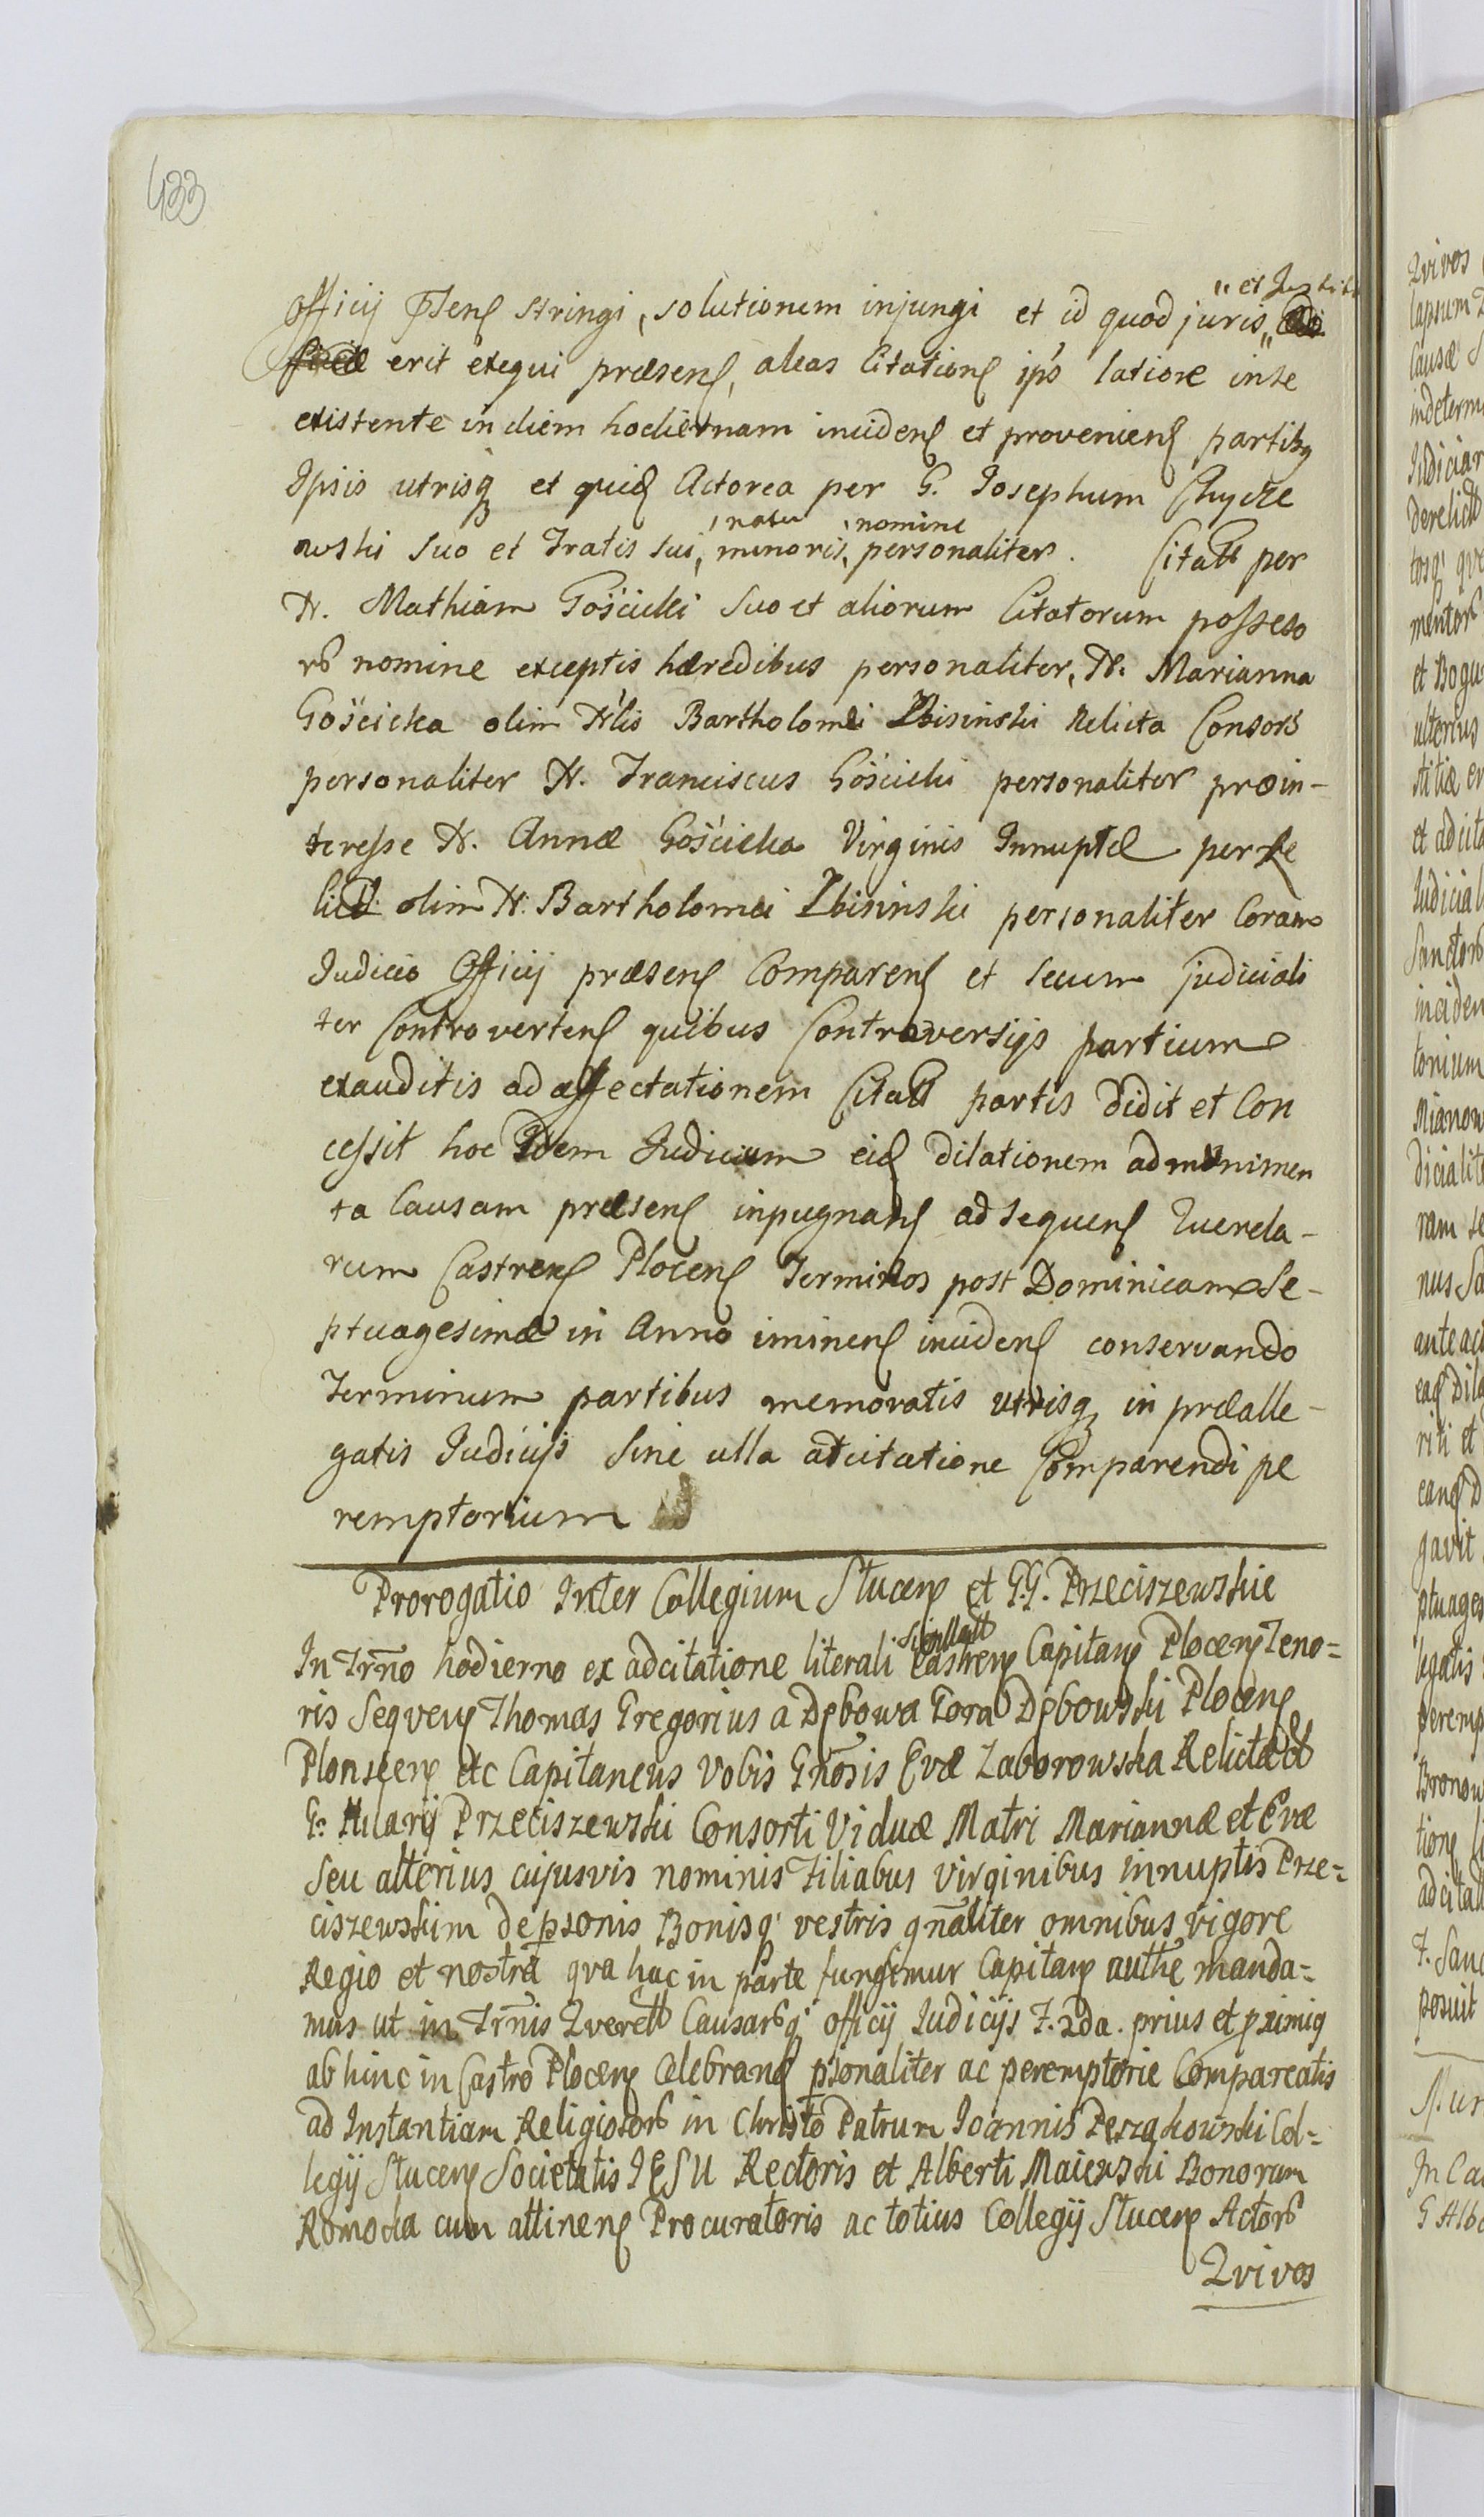 433
" et Justiti
Officij Psens stringi, solutionem injungi et id quod juris "
erit exequi præsens, alias Citations ipo latiore in se
existente in diem hodiernam incidens et proveniens partibq
Ipsis utrisq et quid Actorea per G. Josephum Chycze
natu nomine
wski Suo et Fratis Sui, minoris, personaliter. Citatt per
N. Mathiam Gościcki Suo et aliorum Citatorum posseso
rb nomine exceptis hæredibus personaliter, N. Marianna
Gościcka olim Nlis Bartholomei Zbisinski Relicta Consors
personaliter N. Franciscus Gościcki personaliter proin-
teresse N. Annæ Gościcka Virginis Innuptæ per Re
lict olim N. Bartholomei Zbisinski personaliter Coram
Judicio Officij præsens Comparens et Secum judiciali
ter Controvertens quibus Controversijs partium
exauditis ad affectationem Citatt partis dedit et Con
cessit hoc Idem Judicium eid dilationem ad munimen
ta Causam præsens inpugnans ad sequens Querela-
rum Castrens Plocens Terminos post Dominicam Se-
ptuagesimæ in Anno iminens incidens conservando
Terminum partibus memoratis utrisq in præalle-
gatis Judicijs Sine ulla adcitatione Comparendi pe
remptorium
Prorogatio Inter Collegium Stucens et G.G. Przeciszewskie
Sigillatt
In Trno hodierno ex adcitatione literali Castrens Capitans Plocens Teno=
ris Seqvens Thomas Gregorius a Dębowa Gora Dębowski Plocens
Plonscens etc Capitaneus Vobis Gnosis Evæ Zaborowska Relictæ
G. Hilarij Przeciszewski Consorti Viduæ Matri Mariannæ et Evæ
Seu alterius cujusvis nominis Filiabus virginibus innuptis Prze=
ciszewskim de psonis Bonisq vestris gnaliter omnibus vigore
Regio et nostra qva hac in parte fungimur Capitans authe manda=
mus ut in Trnis Qverell Causarbq officij Judicijs F. 2da. prius et primiq
ab hinc in Castro Plocens Celebrand psonaliter ac peremptorie Compareatis
ad Instantiam Religiosorb in Christo Patrum Joannis Peszakowski Col=
legij Stucens Societatis IESU Rectoris et Alberti Maiewski Bonorum
Romocka cum attinens Procuratoris ac totius Collegij Stucens Actorb
Qvi vos